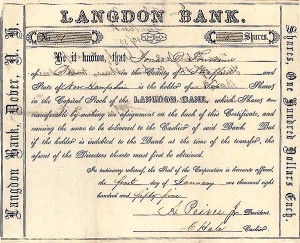 LANGDON BANK.
No.
Shares.
Be it known, that
of in the County of Strafford
State of New Hampshire is the holder of Shares
in the Capital Stock of the LANGDON BANK, which Shares are
transferable by making an assignment on the back of this Certificate, and
causing the same to be delivered to the Cashier of said Bank. But
if the holder is indebted to the Bank at the time of the transfer, the
assent of the Directors thereto must first be obtained.
In testimony whereof, the Seal of the Corporation is hereto affixed,
the first day of January one thousand eight
hundred and fifty five
President.
C Hale Cashier.
Langdon Bank, Dover, N. H.
Shares, One Hundred Dollars Each.